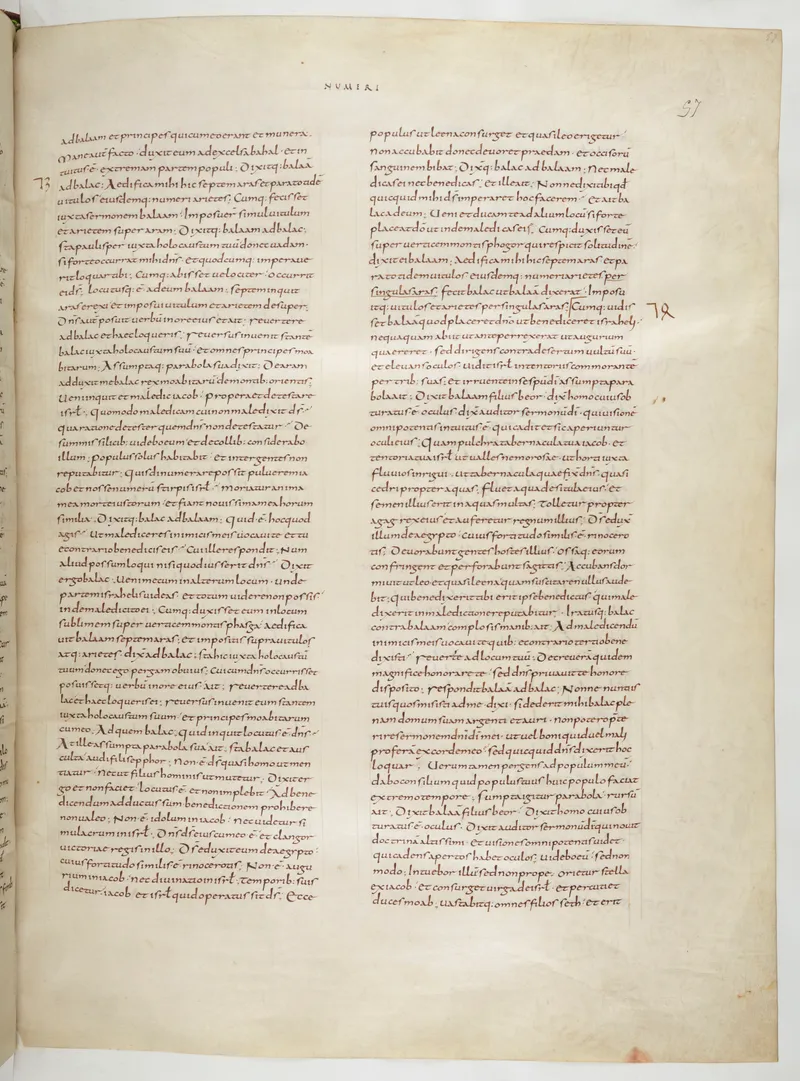 NUMERI
57
adbalaam et principes quicumeoerant et munera .
Mane aut facto . duxit eum ad excelsa bahal . et in
tuitus ē extremam partem populi ; Dixitq: balaā
73
ad balac ; Aedifica mihi hic septem aras et para totidē
uitulos eiusdemq: numeri arietes ; Cumq: fecisset
iuxta sermonem balaam . Imposuer̄ simul uitulum
et arietem super aram ; Dixitq: balaam ad balac ;
sta paulisper iuxta holocaustum tuū donec uadam .
si forte occurrat mihi dn̄s . et quodcumq: imperaue
rit loquar tibi ; Cumq: abisset uelociter . occurrit
ei ds̄ . locutusq: ē ad eum balaam ; septem inquit
aras erexi et imposui uitulum et arietem desuper ;
Dn̄s aut̄ posuit uerbū in ore eius et ait . reuertere
ad balac et haec loqueris ; reuersus inuenit stantē
balac iuxta holocaustum suū . et omnes principes moa
bitarum ; Assumptaq: parabola sua dixit ; De aram
adduxit me balac rex moabitarū de montib: orientis ;
Ueni inquit et maledic iacob . propera et detestare
isrł . Quomodo maledicam cui non maledixit ds̄ .
qua ratione detester quem dn̄s non detestatur . De
summis silicib: uidebo eum et de collib: considerabo
illum ; populus solus habitabit . et inter gentes non
reputabitur ; Quis dinumerare possit puluerem ia
cob et nosse numerū stirpis isrł . moriatur anima
mea morte iustorum . et fiant nouissima mea horum
similia ; Dixitq: balac ad balaam ; Quid ē hoc quod
agis . Ut malediceres inimicis meis uocaui te . et tu
e contrario benedicis eis . Cui ille respondit ; Num
aliud possum loqui nisi quod iusserit dn̄s . Dixit
ergo balac . Ueni mecum in alterum locum . unde
partem israhelis uideas . et totum uidere non possis
inde maledicito ei ; Cumq: duxisset eum in locum
sublimem super uerticem montis phasga . Aedifica
uit balaam septem aras . et impositis supra uitulos
atq: arietes . dix̄ ad balac ; sta hic iuxta holocaustū
tuum donec ego pergam obuius ; Cui cum dn̄s occurrisset
posuissetq: uerbū in ore eius ait ; reuertere ad ba
lac et haec loqueris ei ; reuersus inuenit eum stantem
iuxta holocaustum suum . et principes moabitarum
cum eo ; Ad quem balac ; quid inquit locutus ē dn̄s .
At ille assumpta parabola sua ait ; sta balac et aus
culta . audi fili sephor ; Non ē ds̄ quasi homo ut men
tiatur . nec ut filius hominis ut mutetur ; Dixit er
go et non faciet . locutus ē et non implebit . Ad bene
dicendum adductus sum benedictionem prohibere
non ualeo ; Non ē idolum in iacob . nec uidetur si
mulacrum in isrł ; Dn̄s ds̄ eius cum eo ē . et clangor
uictoriae regis in illo ; Ds̄ eduxit eum de aegypto .
cuius fortitudo similis ē rinocerotis ; Non ē augu
rium in iacob . nec diuinatio in isrł . temporib: suis
dicetur iacob . et isrł quid operatus sit ds̄ . Ecce
populus ut leena consurget . et quasi leo erigetur .
non accubabit donec deuoret praedam . et occisorū
sanguinem bibat ; Dixq: balac ad balaam ; Nec male
dicas ei nec benedicas ; Et ille ait ; Nonne dixi tibi qd̄
quicquid mihi ds̄ imperaret hoc facerem . et ait ba
lac ad eum ; Ueni et ducam te ad alium locū si forte
placeat dō ut inde maledicas eis ; Cumq: duxisset eū
super uerticem montis phogor qui respicit solitudinē .
dixit ei balaam ; Aedifica mihi hic septem aras et pa
ra totidem uitulos . eiusdemq: numeri arietes per
singulas aras ; fecit balac ut balaā dixerat . Imposu
itq: uitulos et arietes per singulas aras ; Cumq: uidis
78
set balaā quod placeret dnō ut benediceret israheli .
nequaquam abiit ut ante perrexerat ut augurium
quaereret . sed dirigens contra desertum uultū suū .
et eleuans oculos . uidit isrł in tentoriis commorantē
per trib: suas . et irruente in se spū dī assumpta para
bola ait ; Dixit balaam filius beor . dix̄ homo cuius ob
turatus ē oculus . dix̄ auditor sermonū dī . qui uisionē
omnipotentis intuitus ē . qui cadit et sic aperiuntur
oculi eius ; Quam pulchra tabernacula tua iacob . et
tentoria tua isrł . ut ualles nemorosae . ut horti iuxta
fluuios inrigui . ut tabernacula quae fixit dn̄s . quasi
cedri propter aquas ; fluet aqua de situla eius . et
semen illius erit in aquas multas ; Tolletur propter
agag rex eius et auferetur regnum illius ; Ds̄ edux̄
illum de aegypto . cuius fortitudo similis ē rinocero
tis ; Deuorabunt gentes hostes illius . ossaq: eorum
confringent et perforabunt sagittis ; Accubans dor
miuit ut leo et quasi leena quam suscitare nullus aude
bit ; qui benedixerit tibi erit ipse benedictus . qui male
dixerit in maledictione reputabitur . Iratusq: balac
contra balaam complosis manib: ait ; Ad maledicendū
inimicis meis uocaui te quib: e contrario tertio bene
dixisti . reuertere ad locum tuū ; Decreuerā quidem
magnifice honorare te . sed dn̄s priuauit te honore
disposito ; respondit balaā ad balac ; Nonne nuntiis
tuis quos misisti ad me dixi . si dederit mihi balac ple
nam domum suam argenti et auri . non potero p̄te
rire sermonem dn̄i dī mei . ut uel boni quid uel mali
proferā ex corde meo . sed quicquid dn̄s dixerit hoc
loquar . Uerumtamen pergens ad populum meū .
dabo consilium quid populus tuus huic populo faciat
extremo tempore ; sumpta igitur parabola . rursū
ait ; Dixit balaā filius beor . Dixit homo cuius ob
turatus ē oculus . Dixit auditor sermonū dī . qui nouit
doctrinā altissimi . et uisiones omnipotentis uidet .
qui cadens apertos habet oculos ; Uidebo eū . sed non
modo ; Intuebor illū sed non prope . orietur stella
ex iacob . et consurget uirga de isrł . et percutiet
duces moab ; uastabitq: omnes filios seth . et erit